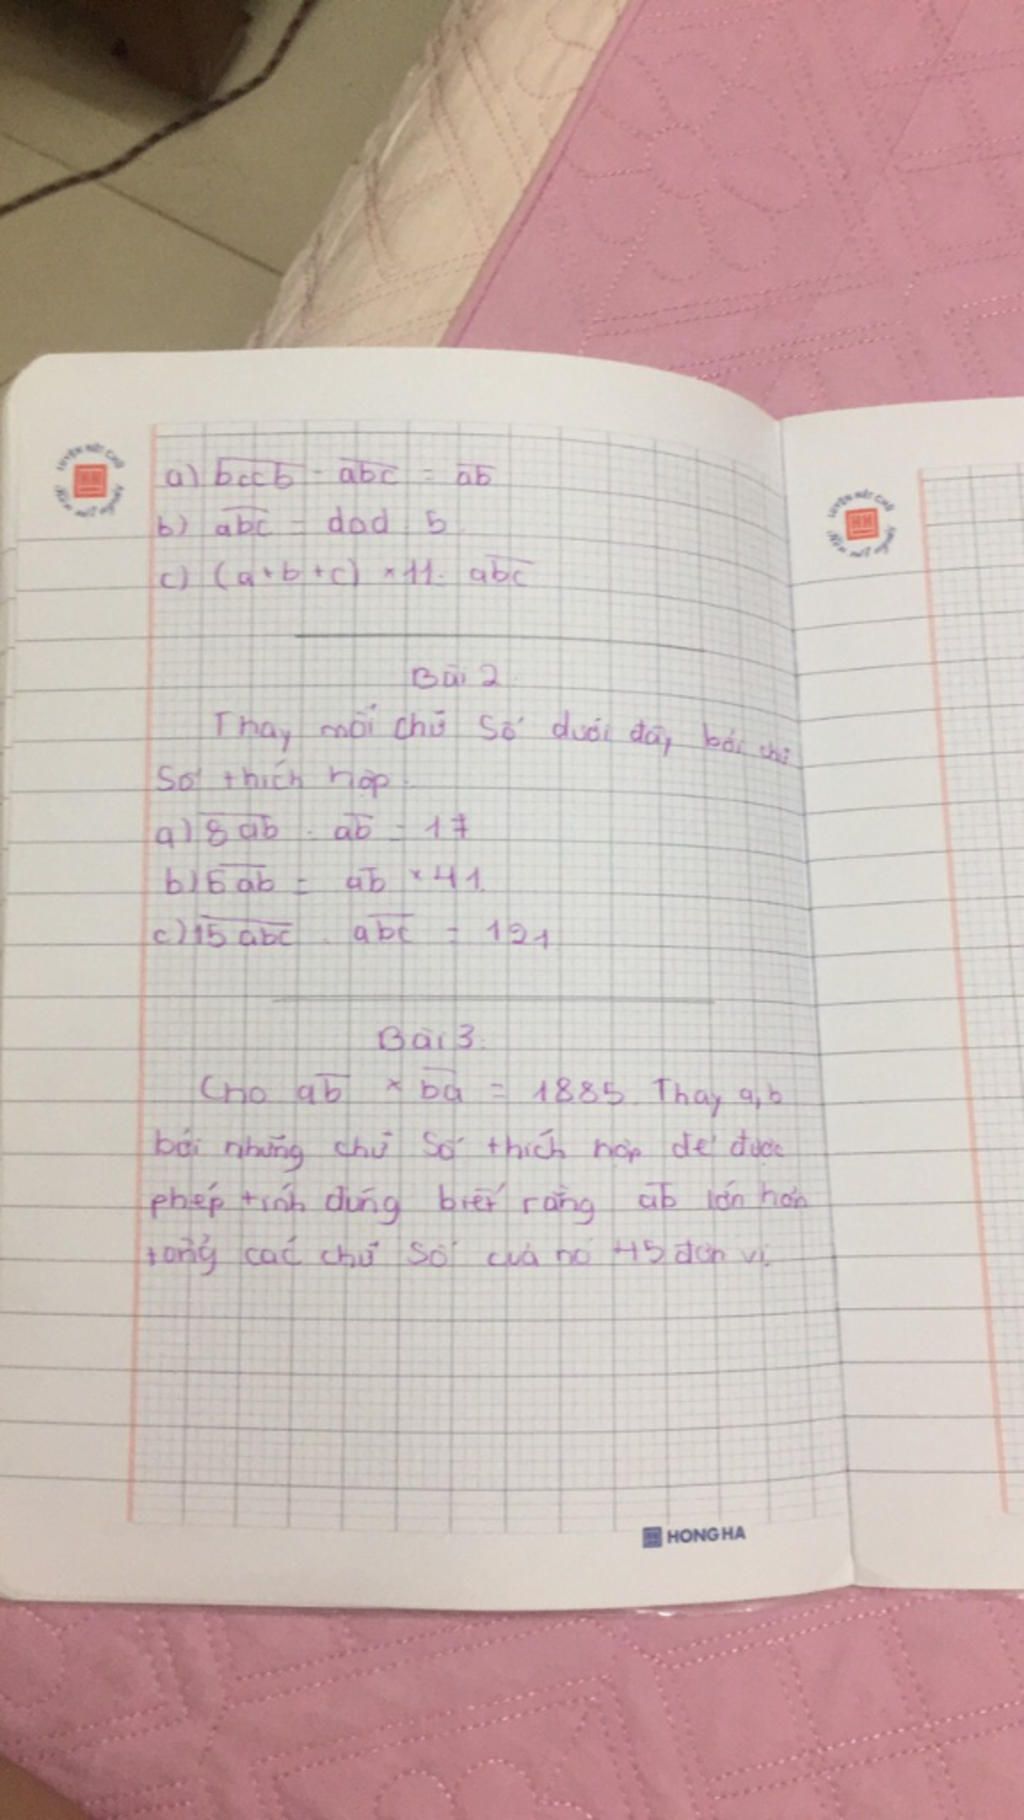 a) bccb - abc = ab
b) abc = dad : 5
c) (a+b+c) × 11 = abc
Bài 2
Thay mỗi chữ số dưới đây bởi chữ
số thích hợp.
a) 8ab : ab = 17
b) 6ab = ab × 41
c) 15abc : abc = 121
Bài 3.
Cho ab × ba = 1885. Thay a, b
bởi những chữ số thích hợp để được
phép tính đúng biết rằng ab lớn hơn
tổng các chữ số của nó 45 đơn vị.
HONG HA